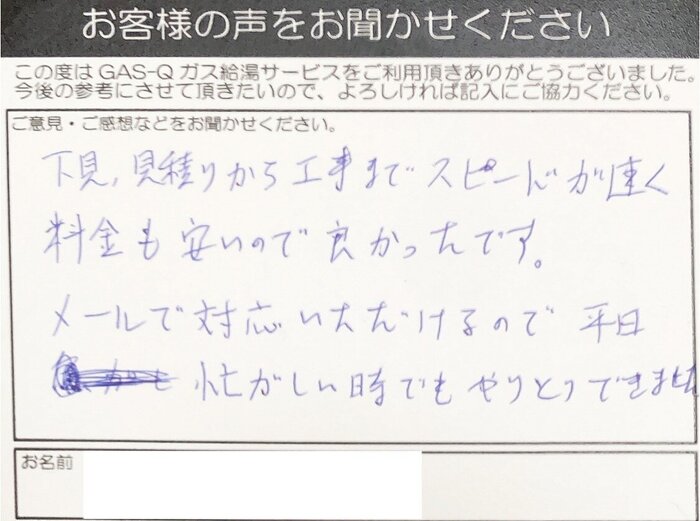 お客様の声をお聞かせください
この度はGAS-Qガス給湯サービスをご利用頂きありがとうございました。
今後の参考にさせて頂きたいので、よろしければ記入にご協力ください。
ご意見・ご感想などをお聞かせください。
下見,見積りから工事までスピードが速く
料金も安いので良かったです。
メールで対応いただけるので平日
忙がしい時でもやりとりできました
お名前